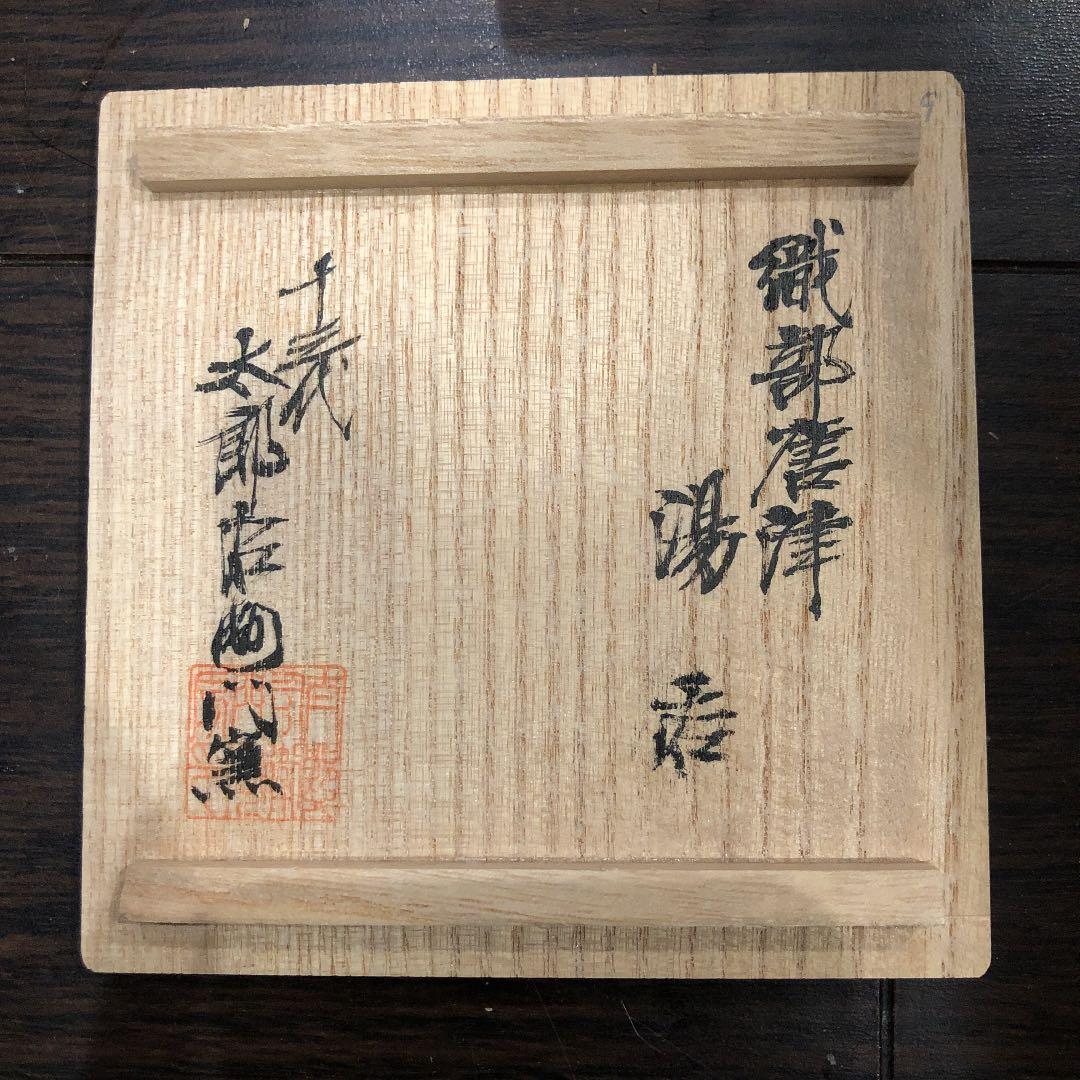 織部唐津
湯呑
十三代
太郎右衛門窯